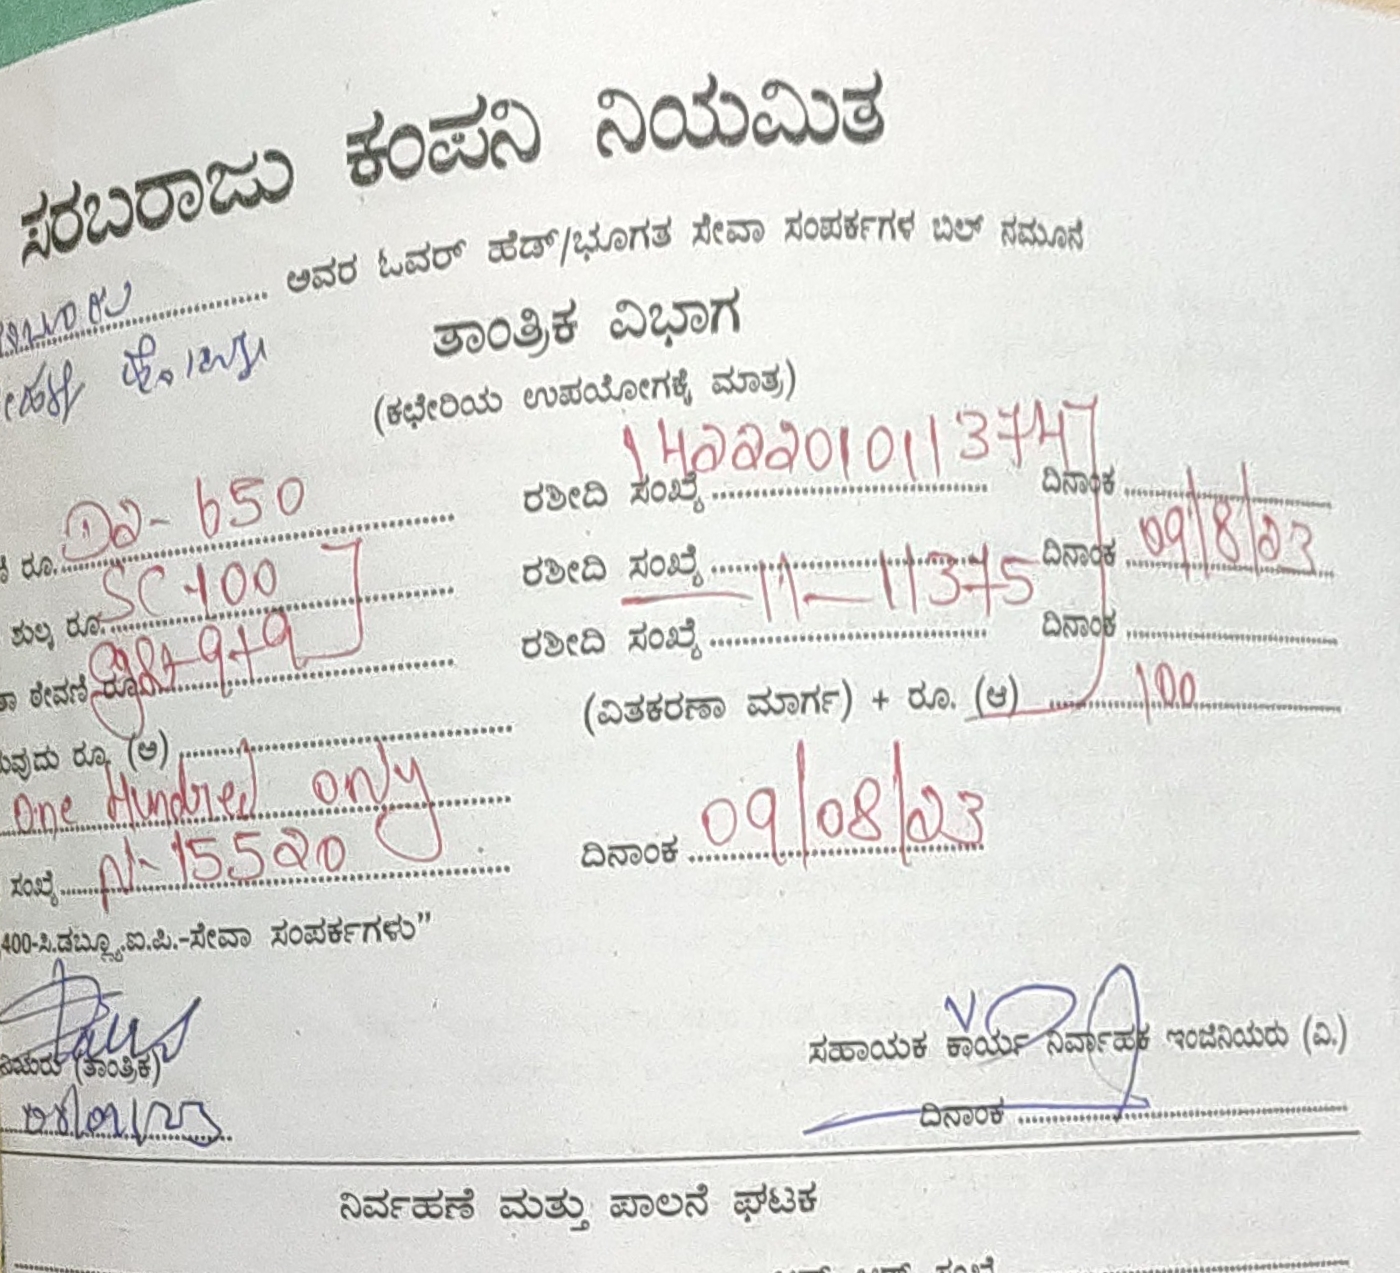 ಸರಬರಾಜು ಕಂಪನಿ ನಿಯಮಿತ
ಅವರ ಓವರ್ ಹೆಡ್/ಭೂಗತ ಸೇವಾ ಸಂಪರ್ಕಗಳ ಬಿಲ್ ನಮೂನೆ
ತಾಂತ್ರಿಕ ವಿಭಾಗ
(ಕಛೇರಿಯ ಉಪಯೋಗಕ್ಕೆ ಮಾತ್ರ)
ರೂ. D2-650 ರಶೀದಿ ಸಂಖ್ಯೆ 14222010113747 ದಿನಾಂಕ
ಶುಲ್ಕ ರೂ. SC-100 ರಶೀದಿ ಸಂಖ್ಯೆ ದಿನಾಂಕ 09/8/23
ಠೇವಣಿ ರೂ. ರಶೀದಿ ಸಂಖ್ಯೆ —11—11375 ದಿನಾಂಕ
ರೂ. (ಆ) (ವಿತಕರಣಾ ಮಾರ್ಗ) + ರೂ. (ಆ) 100
One Hundred only
ಸಂಖ್ಯೆ N-15520 ದಿನಾಂಕ 09/08/23
400-ಸಿ.ಡಬ್ಲ್ಯೂ.ಐ.ಪಿ.-ಸೇವಾ ಸಂಪರ್ಕಗಳು”
(ತಾಂತ್ರಿಕ) ಸಹಾಯಕ ಕಾರ್ಯ ನಿರ್ವಾಹಕ ಇಂಜಿನಿಯರು (ವಿ.)
ದಿನಾಂಕ
ನಿರ್ವಹಣೆ ಮತ್ತು ಪಾಲನೆ ಘಟಕ